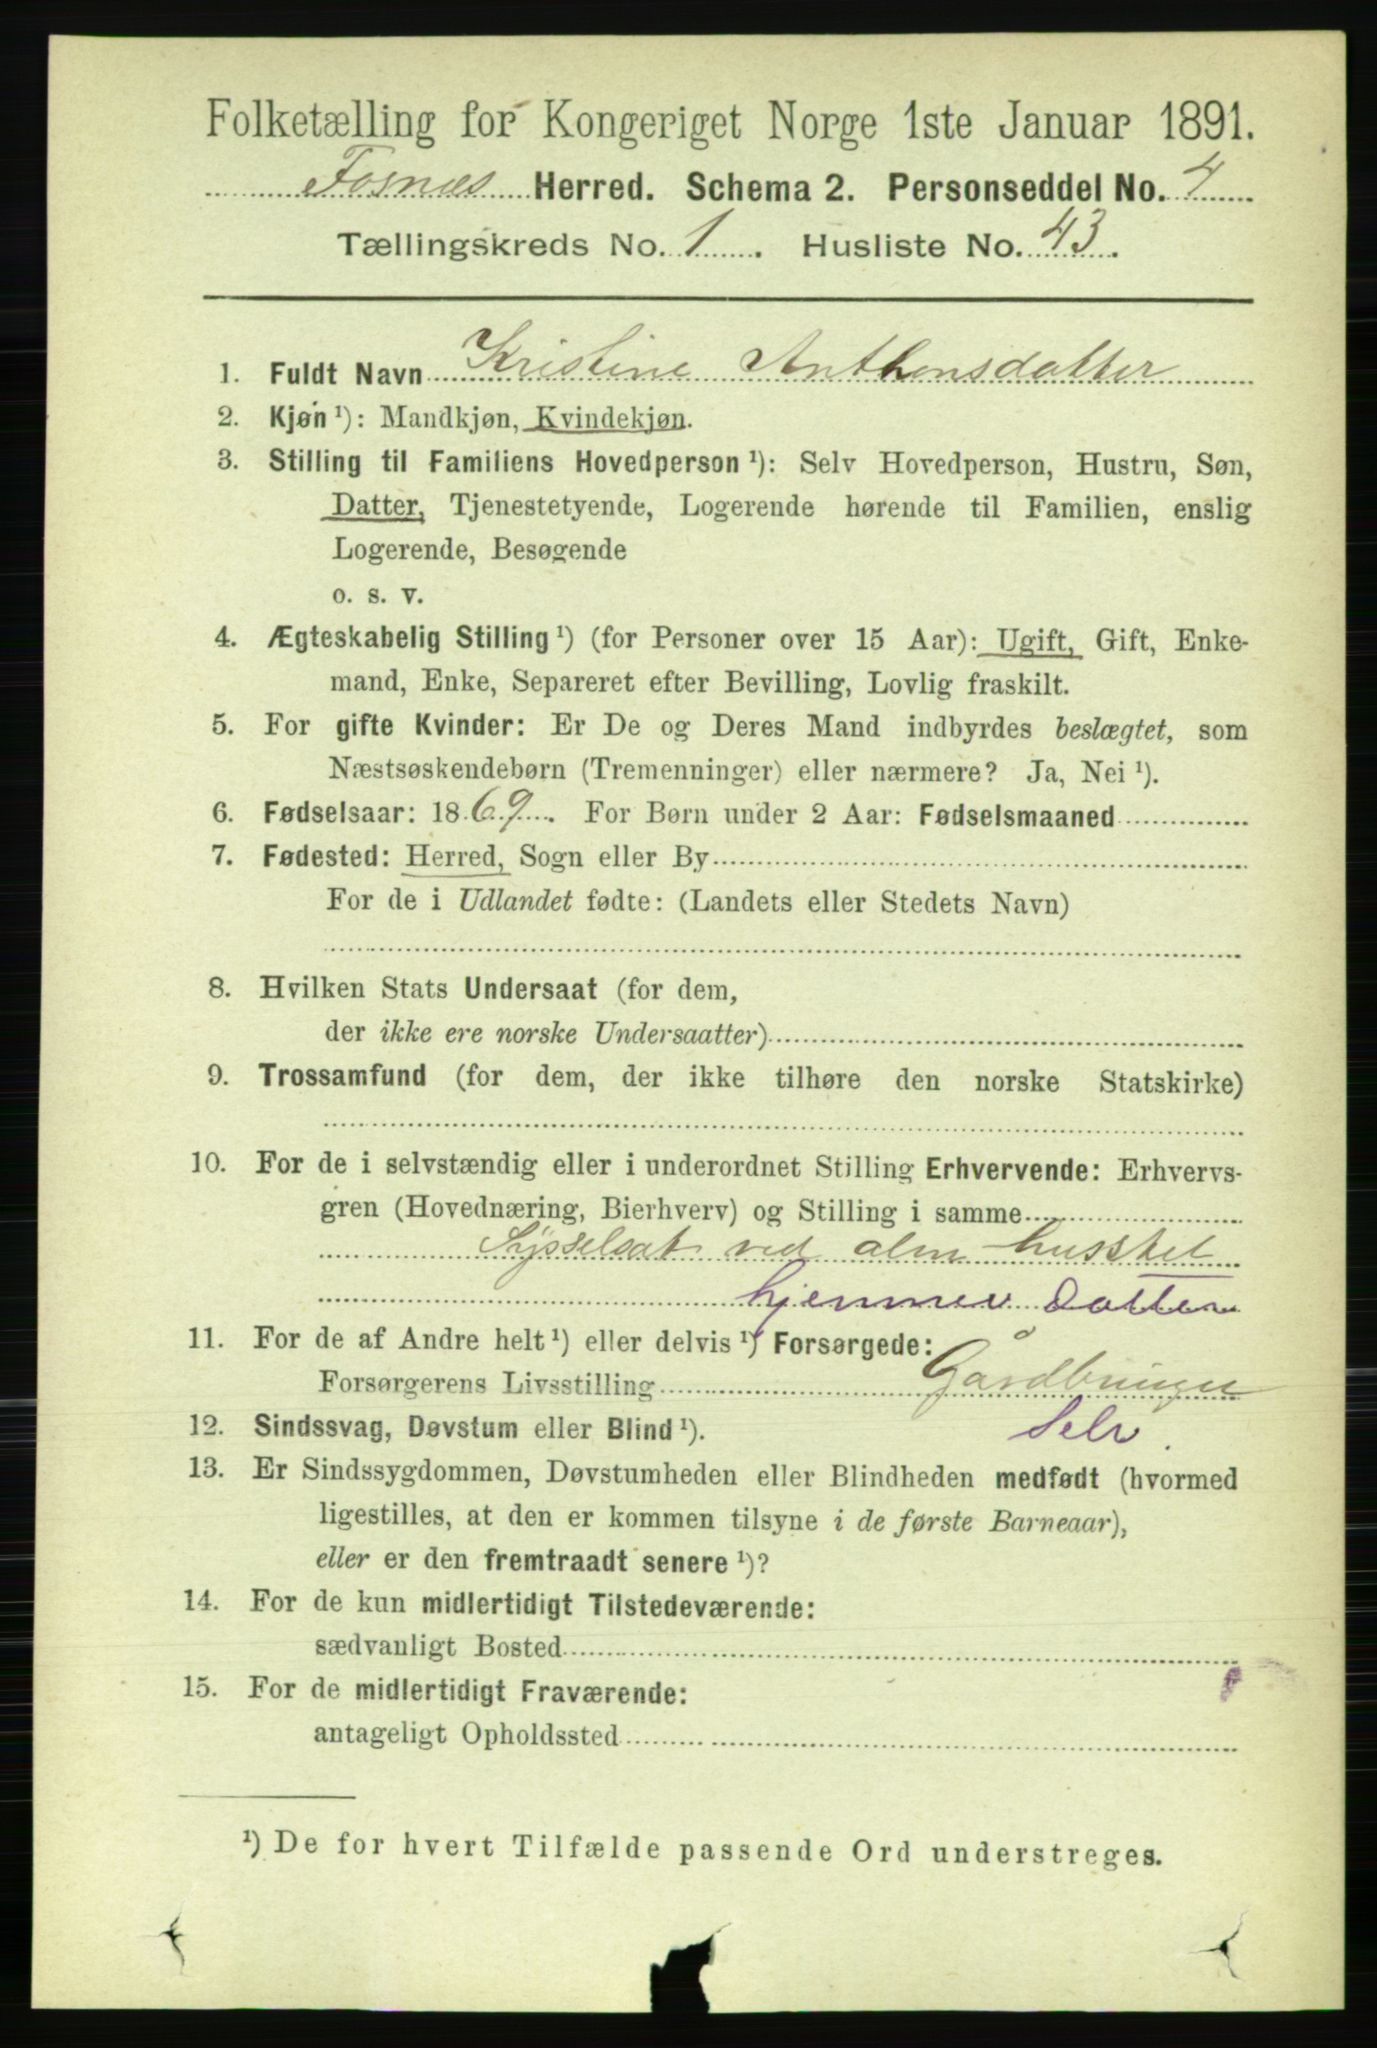 Folketælling for Kongeriget Norge 1ste Januar 1891.
Fosnæs Herred. Schema 2. Personseddel No. 4
Tællingskreds No. 1. Husliste No. 43.
1. Fuldt Navn Kristine Anthonsdatter
2. Kjøn ¹): Mandkjøn, Kvindekjøn.
3. Stilling til Familiens Hovedperson ¹): Selv Hovedperson, Hustru, Søn,
Datter, Tjenestetyende, Logerende hørende til Familien, enslig
Logerende, Besøgende
o. s. v.
4. Ægteskabelig Stilling ¹) (for Personer over 15 Aar): Ugift, Gift, Enke-
mand, Enke, Separeret efter Bevilling, Lovlig fraskilt.
5. For gifte Kvinder: Er De og Deres Mand indbyrdes beslægtet, som
Næstsøskendebørn (Tremenninger) eller nærmere? Ja, Nei ¹).
6. Fødselsaar: 1869. For Børn under 2 Aar: Fødselsmaaned
7. Fødested: Herred, Sogn eller By
For de i Udlandet fødte: (Landets eller Stedets Navn)
8. Hvilken Stats Undersaat (for dem,
der ikke ere norske Undersaatter)
9. Trossamfund (for dem, der ikke tilhøre den norske Statskirke)
10. For de i selvstændig eller i underordnet Stilling Erhvervende: Erhvervs-
gren (Hovednæring, Bierhverv) og Stilling i samme
Sysselsat ved alm husstel
hjemmev Datter
11. For de af Andre helt ¹) eller delvis ¹) Forsørgede:
Forsørgerens Livsstilling Gårdbruger
12. Sindssvag, Døvstum eller Blind ¹). Selv.
13. Er Sindssygdommen, Døvstumheden eller Blindheden medfødt (hvormed
ligestilles, at den er kommen tilsyne i de første Barneaar),
eller er den fremtraadt senere ¹)?
14. For de kun midlertidigt Tilstedeværende:
sædvanligt Bosted
15. For de midlertidigt Fraværende:
antageligt Opholdssted
¹) De for hvert Tilfælde passende Ord understreges.